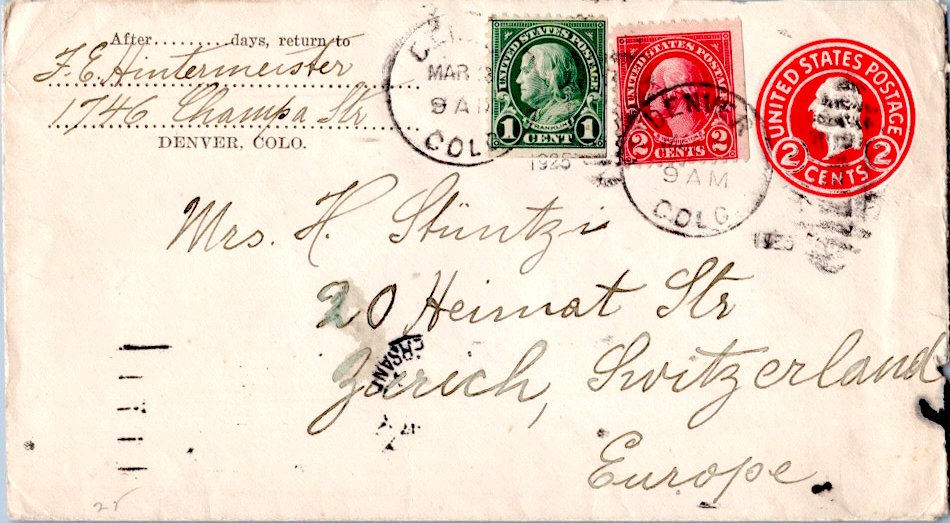 After..........days, return to
F. E. Hintermeister
1746 Champa Str
DENVER, COLO.
MAR
9 AM
COLO
1925
UNITED STATES POSTAGE
FRANKLIN
1 CENT 1
UNITED STATES POSTAGE
2 CENTS 2
DENVER
9 AM
COLO.
1925
UNITED STATES POSTAGE
2 CENTS 2
Mrs. H. Stüntzi
20 Heimat Str
Zürich, Switzerland
Europe
25